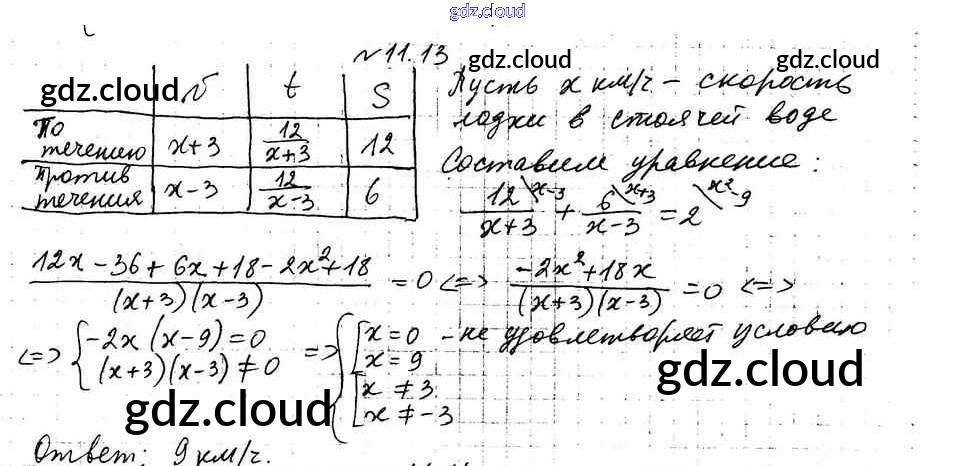 gdz.cloud
№11.13
gdz.cloud gdz.cloud
v t S
По течению x+3 12/(x+3) 12
Против течения x-3 12/(x-3) 6
Пусть x км/ч - скорость
лодки в стоячей воде
Составим уравнение:
12/(x+3) \x-3 + 6/(x-3) \x+3 = 2 \x²-9
(12x-36+6x+18-2x²+18)/((x+3)(x-3)) =0 <=> (-2x²+18x)/((x+3)(x-3)) =0 <=>
<=> { -2x(x-9)=0 (x+3)(x-3)≠0 => { [ x=0 - не удовлетворяет условию x=9 [ x≠3 x≠-3
gdz.cloud gdz.cloud
Ответ: 9 км/ч.
gdz.cloud